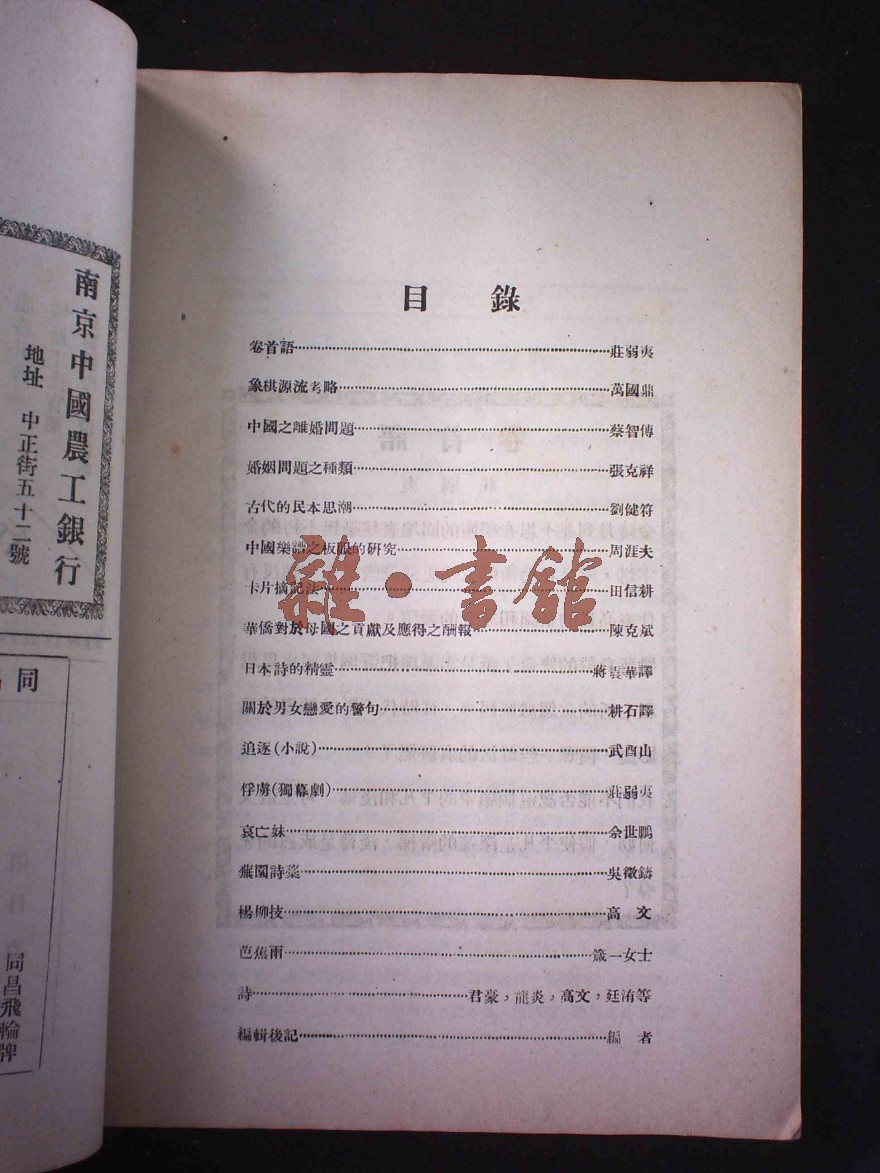 目 錄
卷首語……莊弱夷
象棋源流考略……萬國鼎
中國之離婚問題……蔡智傳
婚姻問題之種類……張克祥
古代的民本思潮……劉健符
中國樂譜之板眼的研究……周涯夫
卡片摘記法……田信耕
華僑對於母國之貢獻及應得之酬報……陳克斌
日本詩的精靈……蔣震華譯
關於男女戀愛的警句……耕石譯
追逐(小說)……武酉山
俘虜(獨幕劇)……莊弱夷
哀亡妹……余世鵬
詩藁……吳徵鑄
楊柳技……高 文
芭蕉雨……箴一女士
詩……君豪，龍炎，高文，廷洧等
編輯後記……編 者
雜·書館
南京中國農工銀行
地址 中正街五十二號
同
同昌飛輪牌